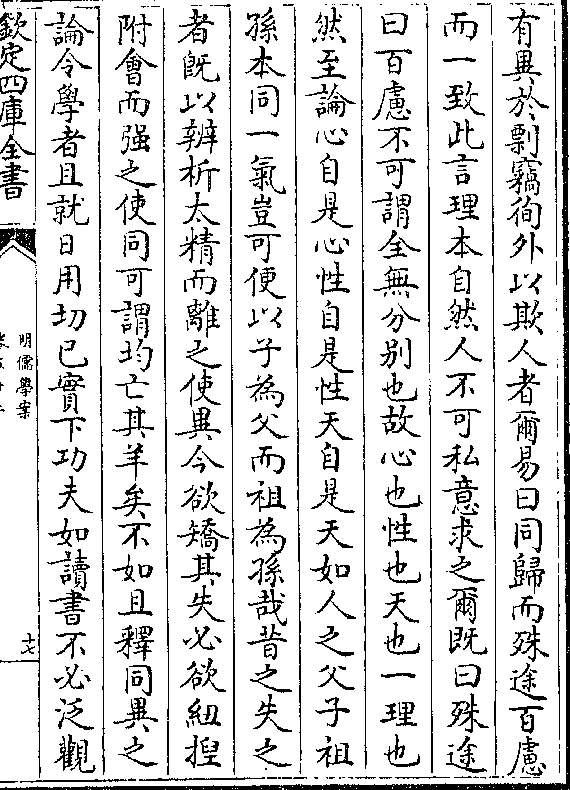 有異於剽竊徇外以欺人者爾易曰同歸而殊途百慮
而一致此言理本自然人不可私意求之爾既曰殊途
曰百慮不可謂全無分别也故心也性也天也一理也
然至論心自是心性自是性天自是天如人之父子祖
孫本同一氣豈可便以子為父而祖為孫哉昔之失之
者既以辨析太精而離之使異今欲矯其失必欲紐揑
附會而强之使同可謂均亡其羊矣不如且釋同異之
論令學者且就日用切已實下功夫如讀書不必泛觀
欽定四庫全書
明儒學案
十七